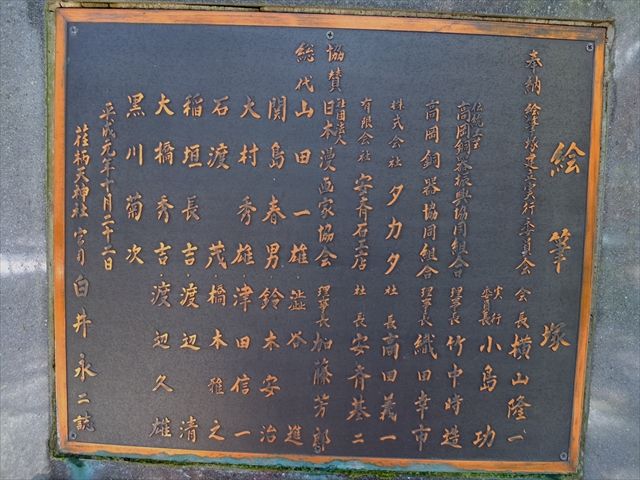 絵筆塚
奉納 絵筆塚建立実行委員会 会長 横山隆一
実行委員長 小島功
伝統工芸高岡銅器振興協同組合 理事長 竹中時造
高岡銅器協同組合 理事長 織田幸市
株式会社 タカタ 社長 高田義一
有限会社 安斉石工店 社長 安斉基二
協賛 社団法人 日本漫画家協会 理事長 加藤芳郎
総代 山田一雄・澁谷進
関島春男・鈴木安治
大村秀雄・津田信一
石渡茂・橋本雅之
稲垣長吉・渡辺清
大橋秀吉・渡辺久雄
黒川菊次
平成元年十月二十二日
荏柄天神社 宮司 白井永二 誌